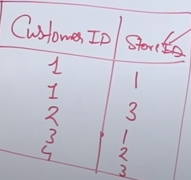 Customer ID Store ID
1 1
1 3
2 1
3 2
4 3